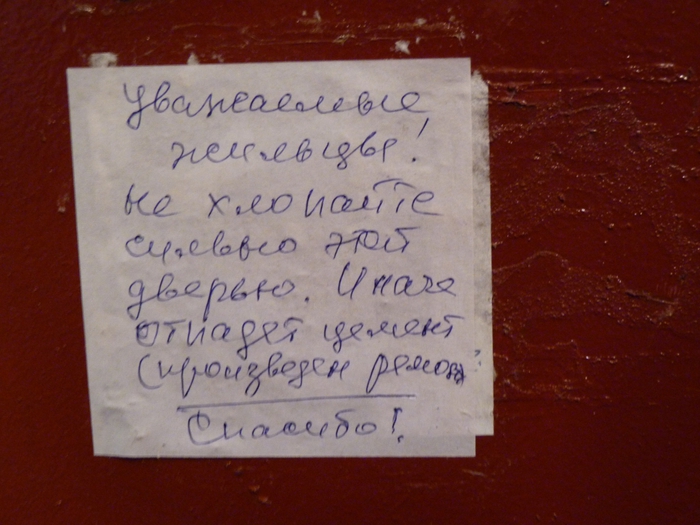 Уважаемые
жильцы!
не хлопайте
сильно этой
дверью. Иначе
отпадет цемент
(произведен ремонт
Спасибо!